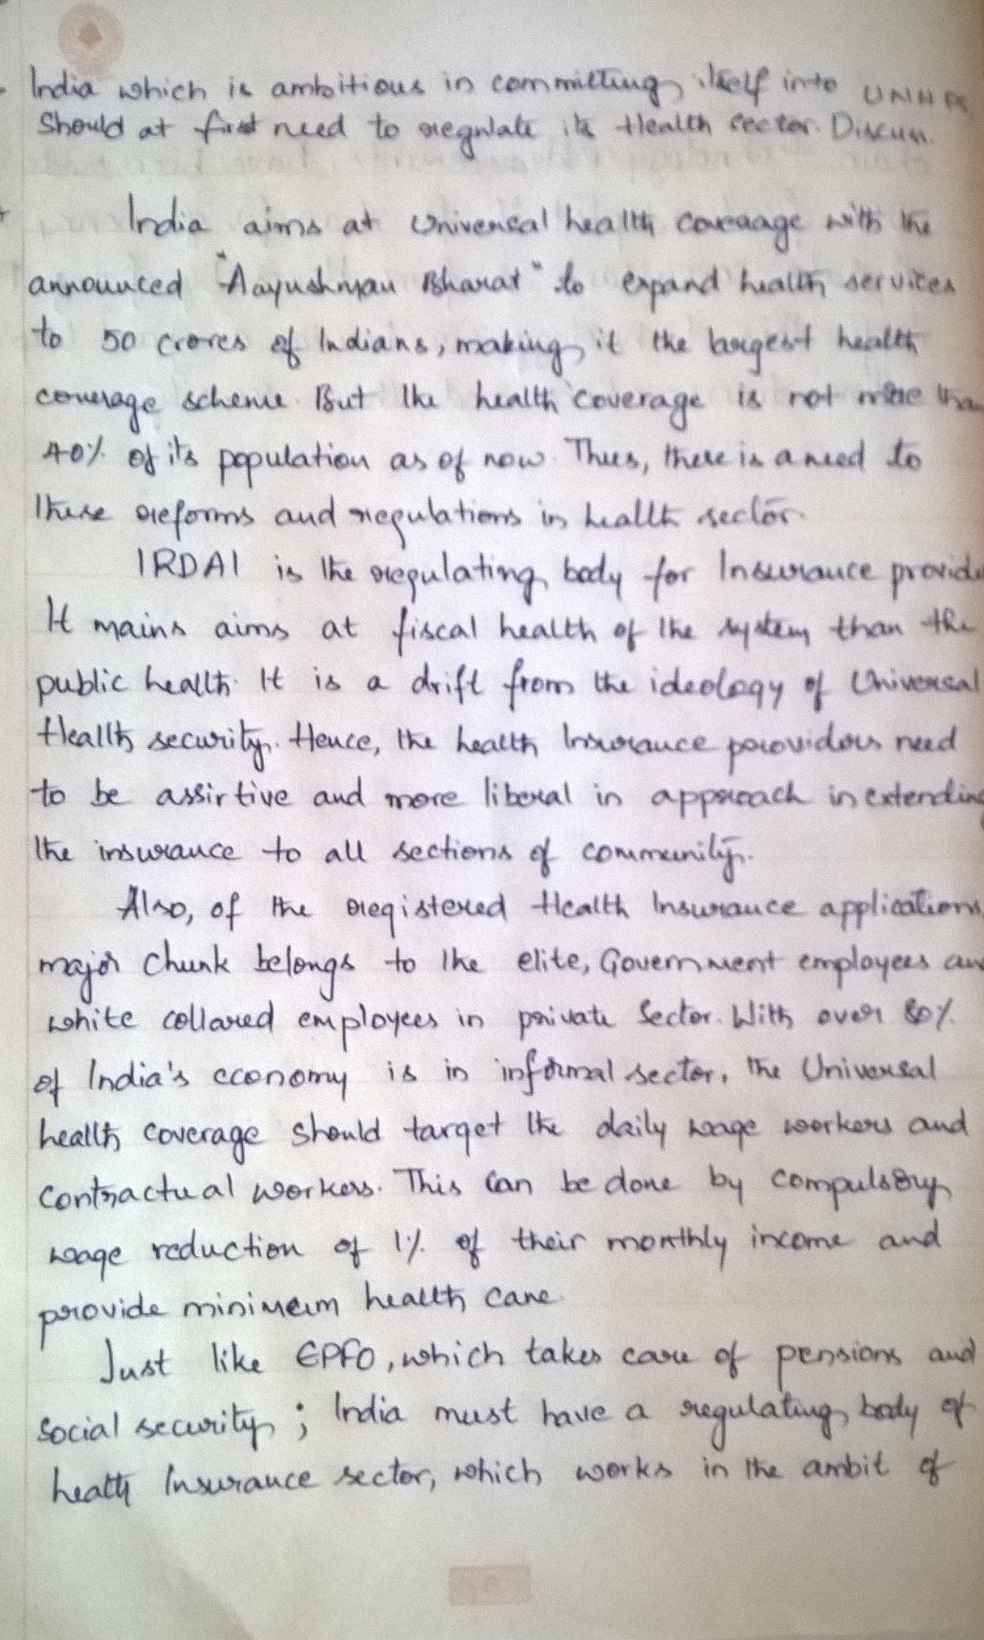 India which is ambitious in committing itself into
should at first need to regulate its Health sector. Discuss.
India aims at Universal health coverage with the
announced "Aayushman Bharat" to expand health services
to 50 crores of Indians, making it the largest health
coverage scheme. But the health coverage is not more than
40% of its population as of now. Thus, there is a need to
these reforms and regulations in health sector.
IRDAI is the regulating body for Insurance provide
It mains aims at fiscal health of the system than the
public health. It is a drift from the ideology of Universal
Health security. Hence, the health Insurance providors need
to be assirtive and more liberal in approach in extending
the insurance to all sections of community.
Also, of the registered Health Insurance applications,
major chunk belongs to the elite, Government employees and
white collared employees in private sector. With over 80%
of India's economy is in informal sector, the Universal
health coverage should target the daily wage workers and
contractual workers. This can be done by compulsory
wage reduction of 1% of their monthly income and
provide minimum health care.
Just like EPFO, which takes care of pensions and
social security; India must have a regulating body of
heath Insurance sector, which works in the ambit of